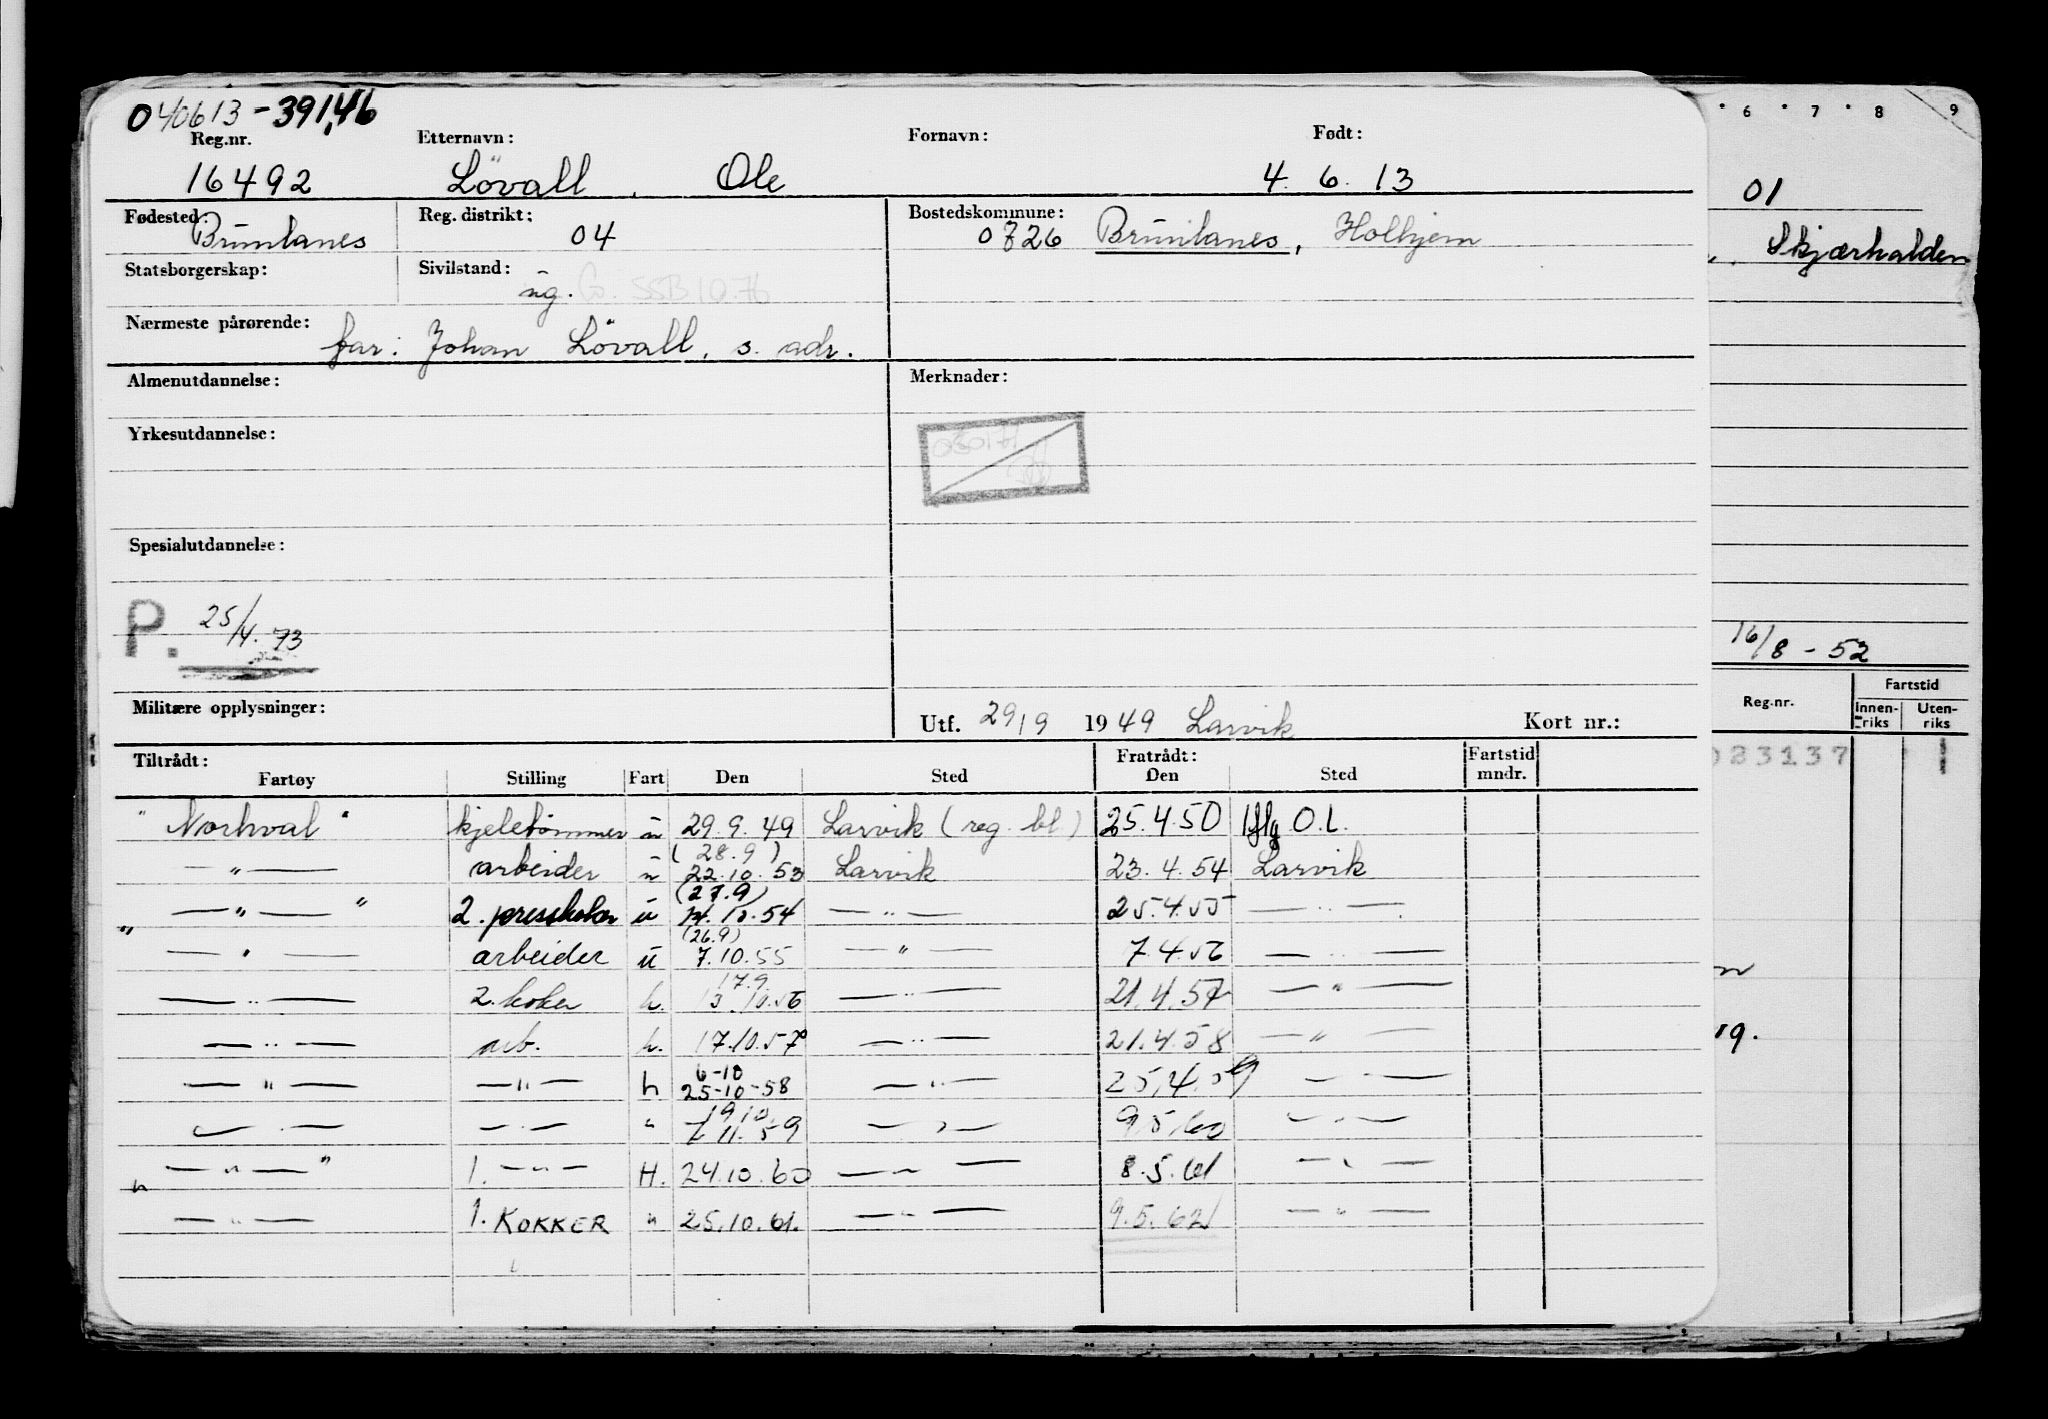 040613-39146
Reg.nr. Etternavn: Fornavn: Født:
16492 Lövall, Ole 4. 6. 13
Fødested: Brunlanes Reg. distrikt: 04 Bostedskommune: 0726 Brunlanes, Holhjem
Statsborgerskap: Sivilstand: ug. G. SSB.10.76
Nærmeste pårørende: far: Johan Lövall, s. adr.
Almenutdannelse: Merknader:
Yrkesutdannelse:
Spesialutdannelse:
P. 25/4.73
Militære opplysninger: Utf. 29/9 1949 Larvik Kort nr.:
Tiltrådt: Fratrådt: Fartstid
Fartøy Stilling Fart Den Sted Den Sted mndr.
"Norhval" kjeletømmer u 29.9.49 Larvik (reg. bl) 25.4.50 O.L.
(28.9)
—"— arbeider u 22.10.53 Larvik 23.4.54 Larvik
(27.9)
"—"—" 2. presskoker u 10.54 —"— 25.4.55 —"—
(26.9)
—"— arbeider u 7.10.55 —"— 7.4.56 —"—
17.9
—"— 2. koker h. 13.10.56 —"— 21.4.57 —"—
—"— arb. h. 17.10.57 —"— 21.4.58 —"—
6-10
—"— —"— h 25-10-58 —"— 25.4.59 —"—
19.10
—"— —"— " 11.59 —"— 9.5.60 —"—
"—"—" 1. —"— H. 24.10.60 —"— 8.5.61 —"—
—"— 1. KOKKER " 25.10.61. —"— 9.5.62 —"—
6 7 8 9
01
Skjærhalden
16/8-52
Reg.nr. Fartstid
Innen-riks Uten-riks
083137 1
19.